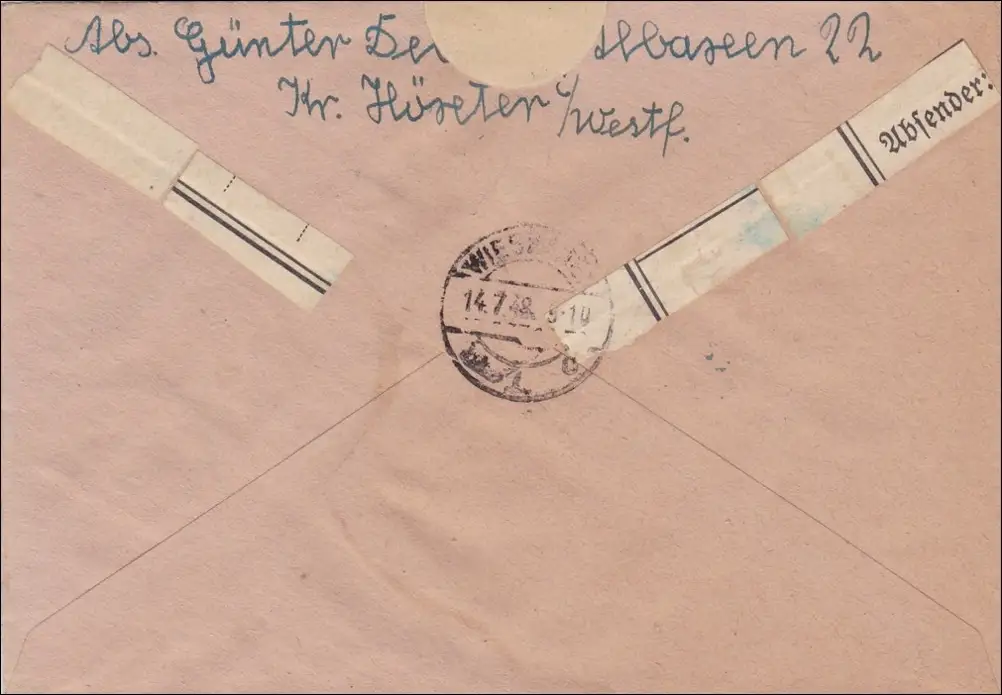 Abs. Günter De Albaxen 22
Kr. Höxeter i/Westf.
Absender:
WIESBADEN
14.7.48. -10
c